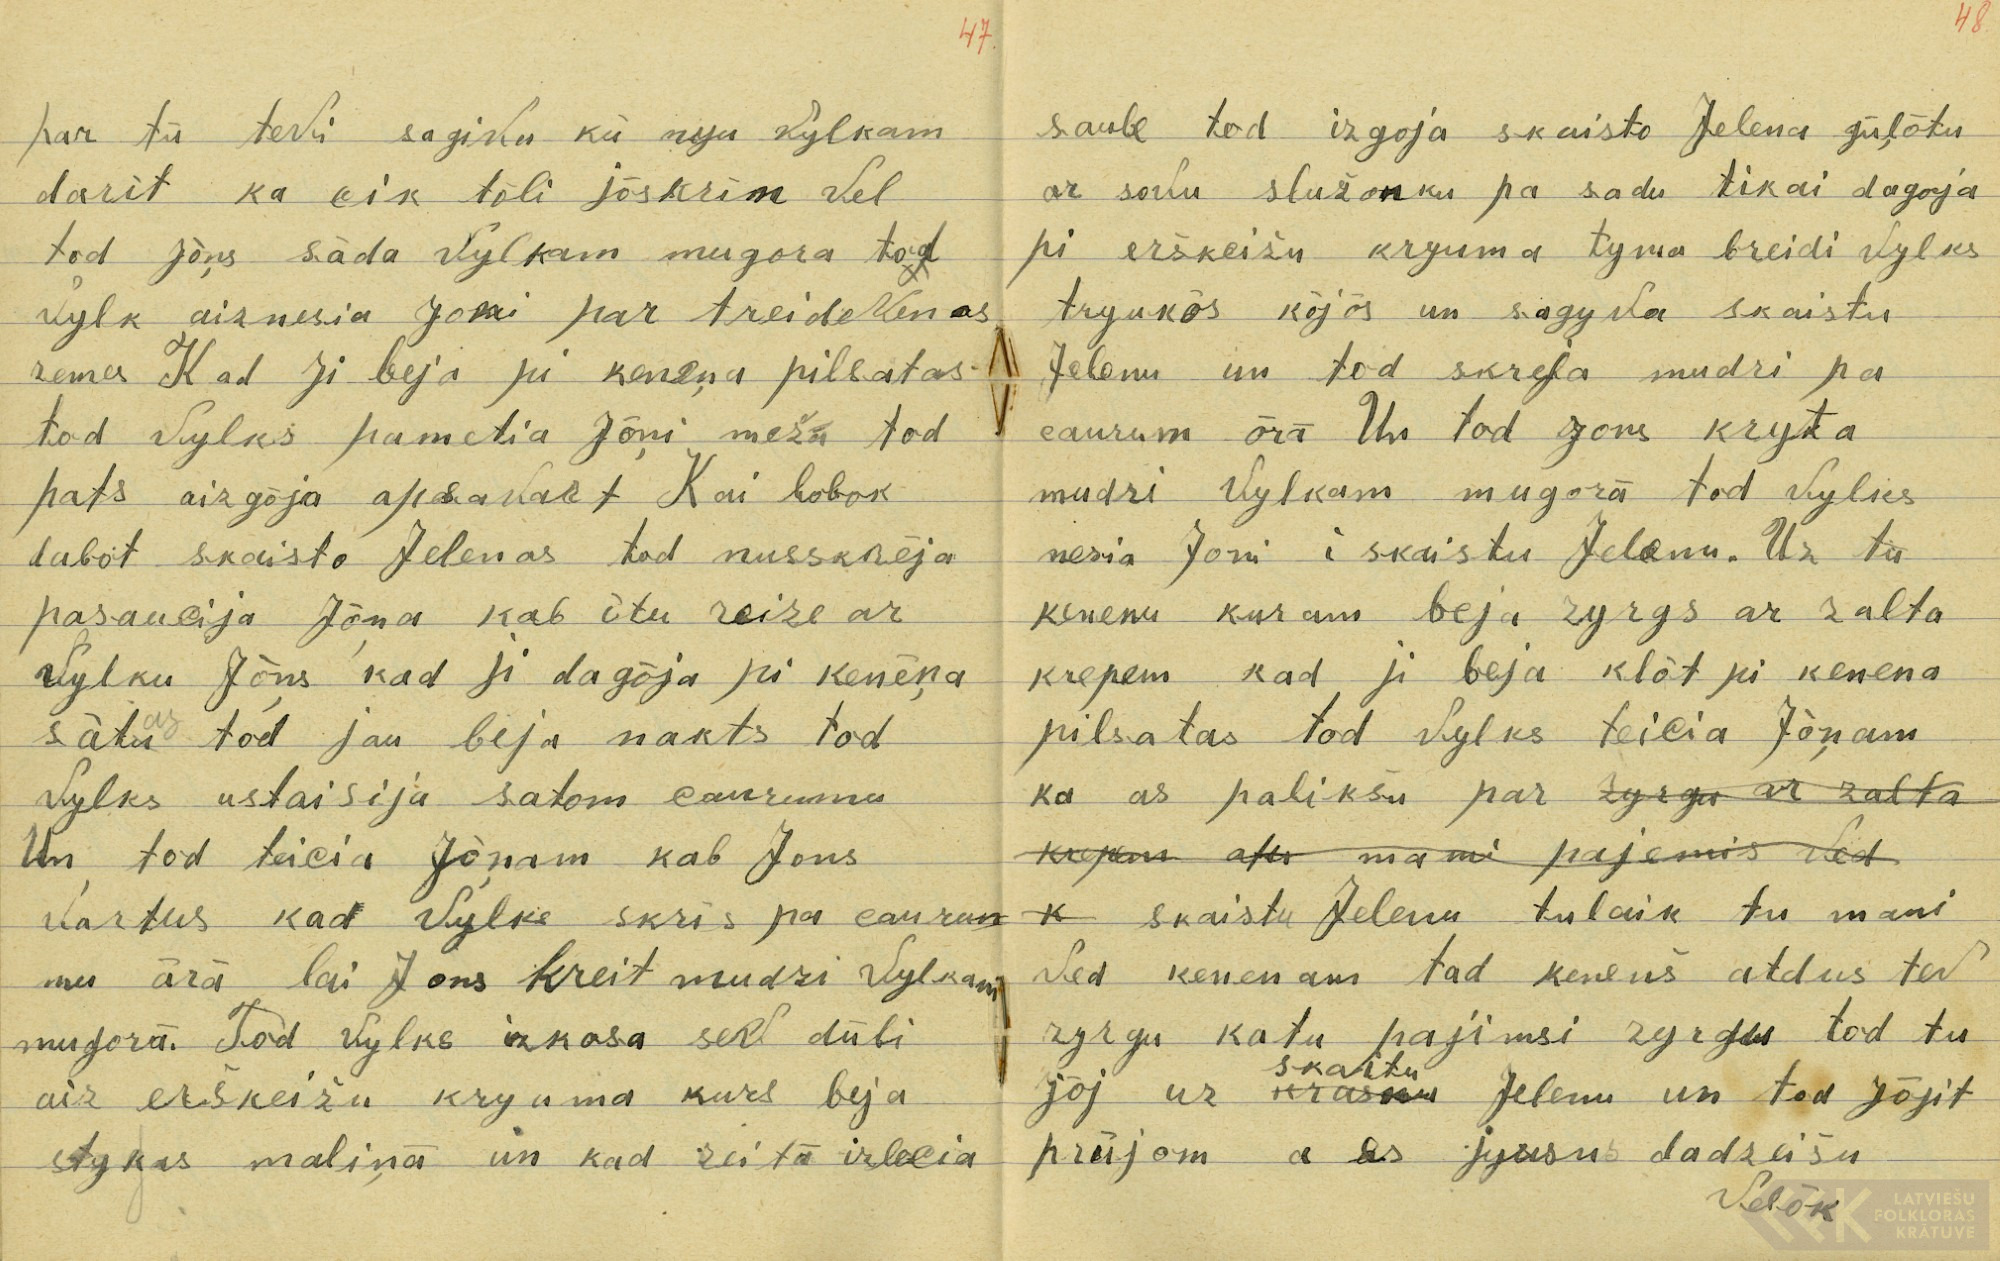 47.
par tū tevi sagivu kū nyu vylkam
darīt ka cik tōli jōskrīn vel
tod Jōņs sāda vylkam mugora tod
vylk aiznesia Joni par treidevenas
zemes Kad ji beja pi keneņa pilsatas
tod vylks pametia Jōņi mežu tod
pats aizgōja apsavart Kai lobok
dabot skaisto Jelenas tod nusskrēja
pasaucija Jōņa kab ītu reize ar
vylku Jōņs kad ji dagōja pi kenēņa
sātuas tod jau beja nakts tod
vylks ustaisija satom caurumu
Un tod teicia Jōņam kab Jons
vartus kad vylks skris pa cauru
mu ārā lai Jons kreit mudri vylkam
mugorā. Tod vylks izkosa sev dūbi
aiz erškeižu kryuma kurs beja
stykas maliņā un kad reitā izlecia
48
saule tod izgoja skaisto Jelena gūļōtu
ar sovu služonku pa sadu tikai dagoja
pi erškeižu kryuma tyma breidi vylks
tryukōs kōjōs un sagyva skaistu
Jelenu un tod skreja mudri pa
caurum ōrā Un tod Jons kryta
mudri vylkam mugorā tod vylks
nesia Joni i skaistu Jelenu. Uz tū
kenenu kuram beja zyrgs ar zalta
krepem kad ji beja klōt pi kenena
pilsatas tod vylks teicia Jōņam
ka as palikšu par zyrgu ar zalta
krepem mani pajemis ved
k skaistu Jelenu tulaik tu mani
ved kenenam tad kenenš atdus tev
zyrgu katu pajimsi zyrgu tod tu
skaistu
jōj uz krasnu Jelenu un tod jōjit
prūjom a as jyusus dadzeišu
velōk
LATVIEŠU
FOLKLORAS
KRĀTUVE